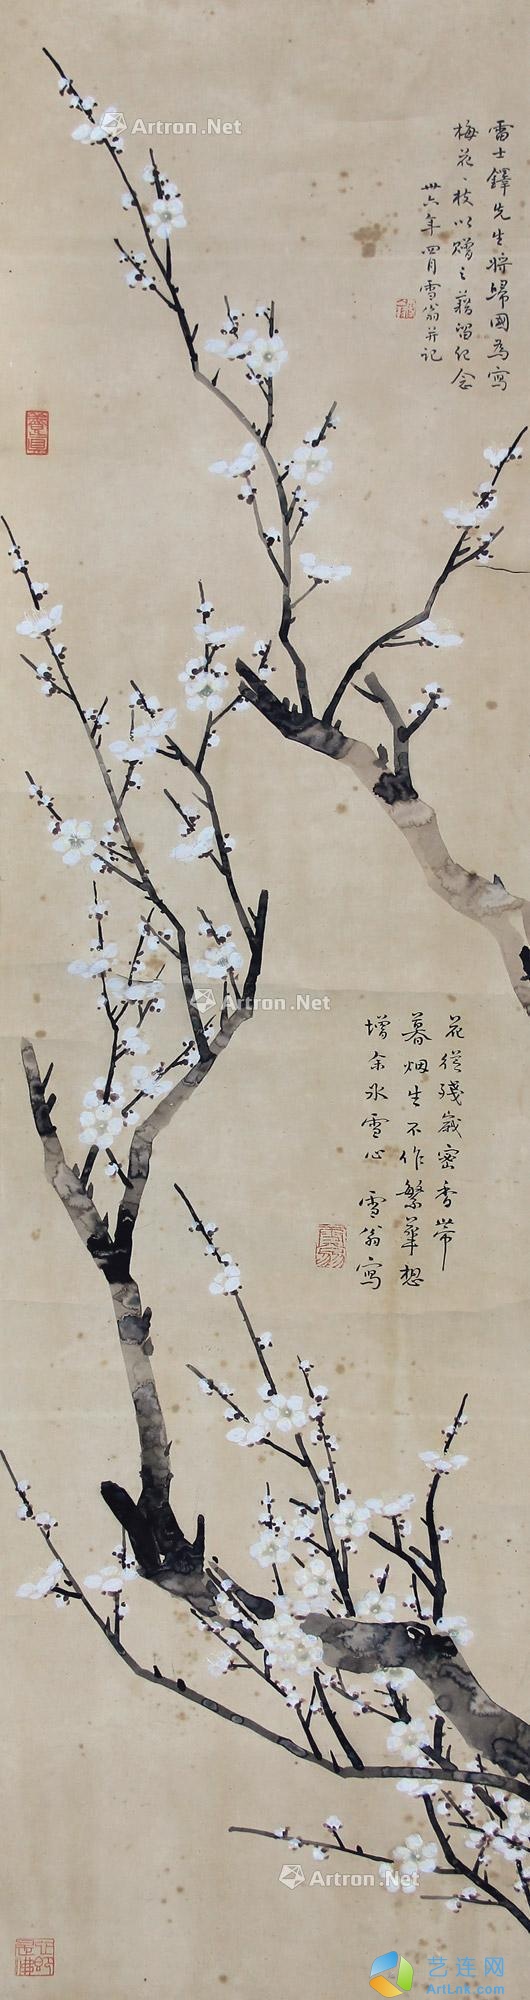 雷士鐸先生将歸國為寫
梅花一枝以贈之藉留紀念
卅六年四月雪翁并记
Artron.Net
花從殘歲密香帶
暮烟生不作繁華想
增余氷雪心 雪翁寫
Artron.Net
Artron.Net
艺连网
ArtLnk.com